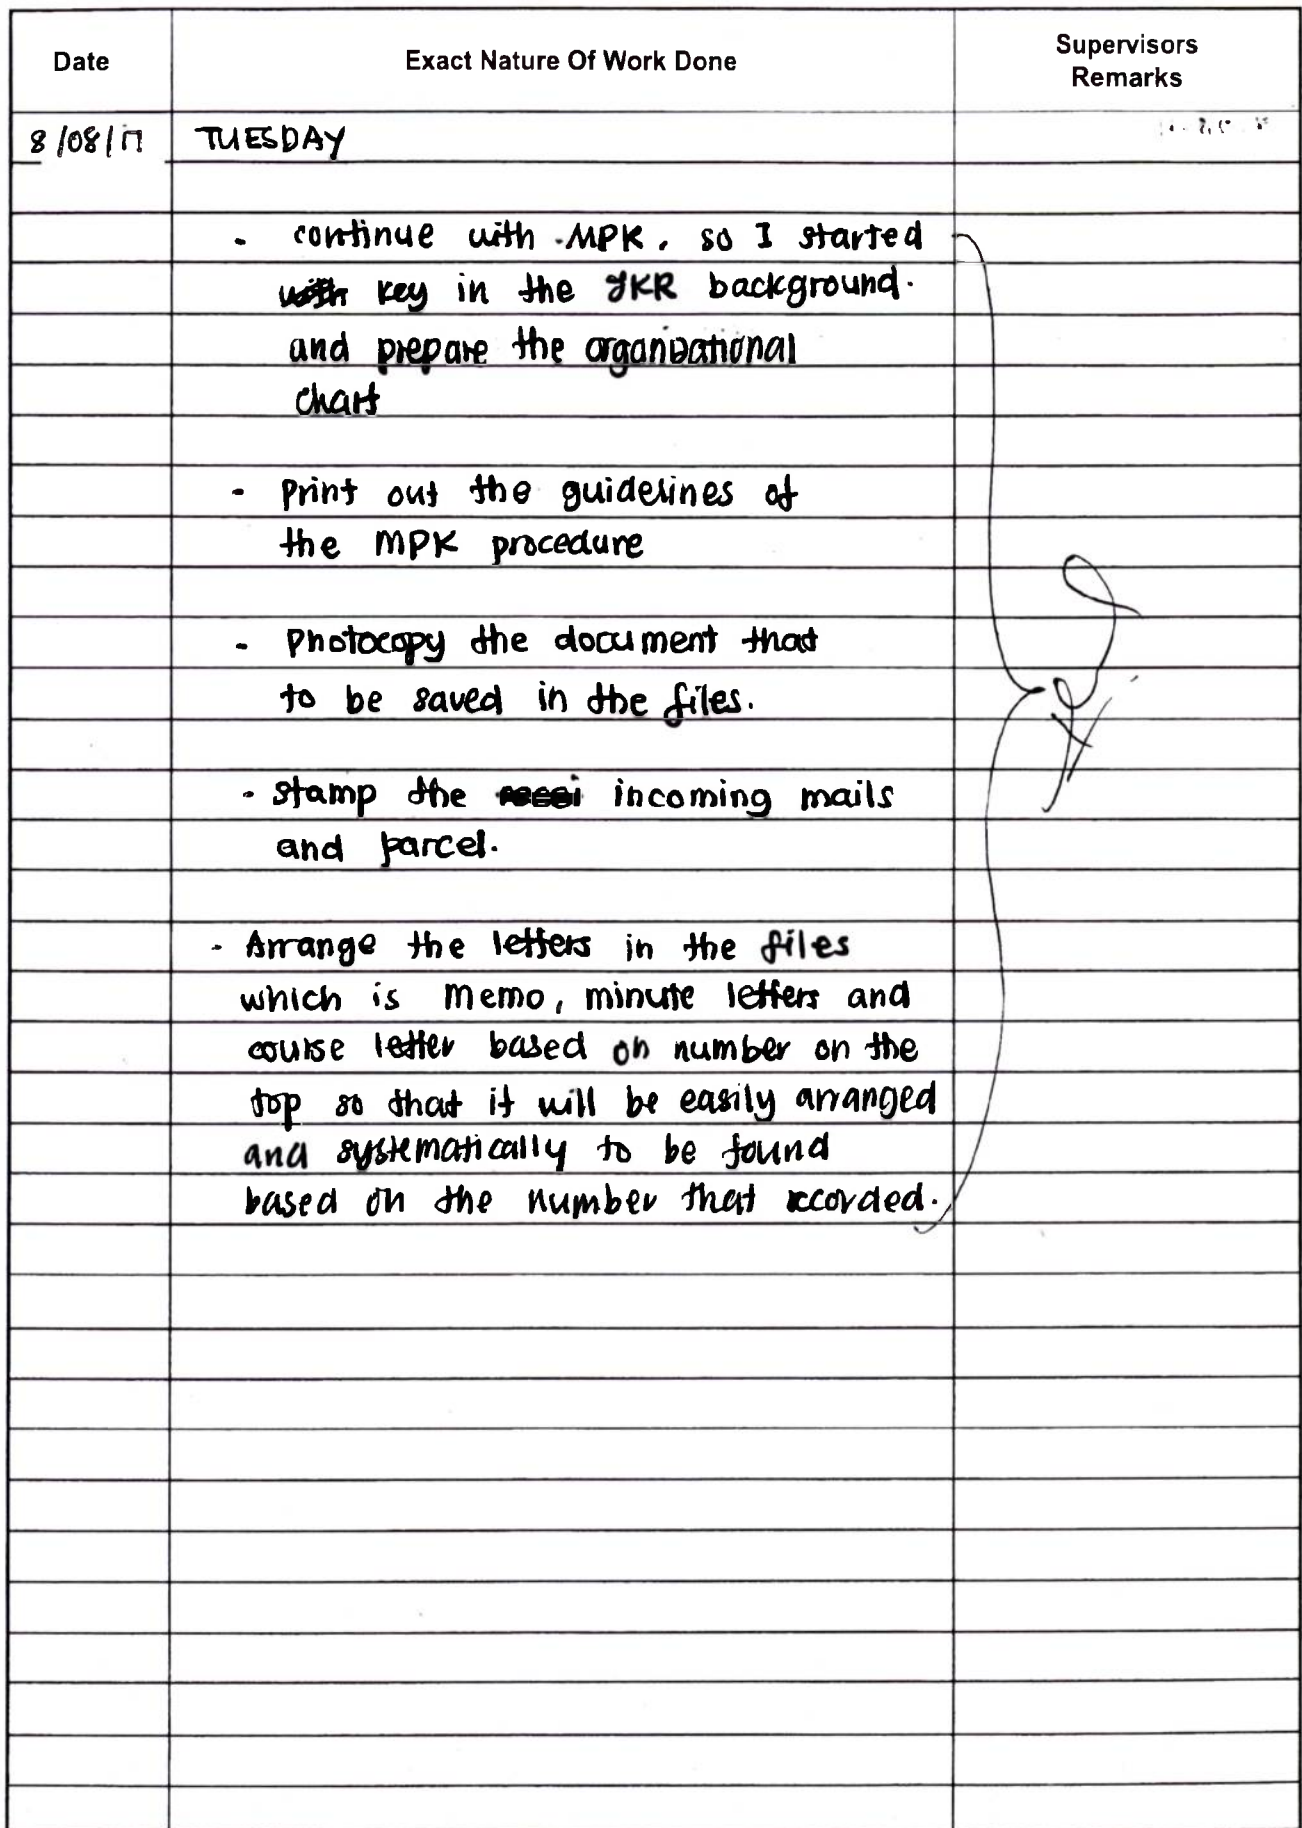 Date
Exact Nature Of Work Done
Supervisors
Remarks
8/08/17
TUESDAY
- continue with MPK, so I started
with key in the JKR background.
and prepare the organisational
chart
- Print out the guidelines of
the MPK procedure
- Photocopy the document that
to be saved in the files.
- stamp the recei incoming mails
and parcel.
- Arrange the letters in the files
which is Memo, minute letters and
course letter based on number on the
top so that it will be easily arranged
and systematically to be found
based on the number that recorded.